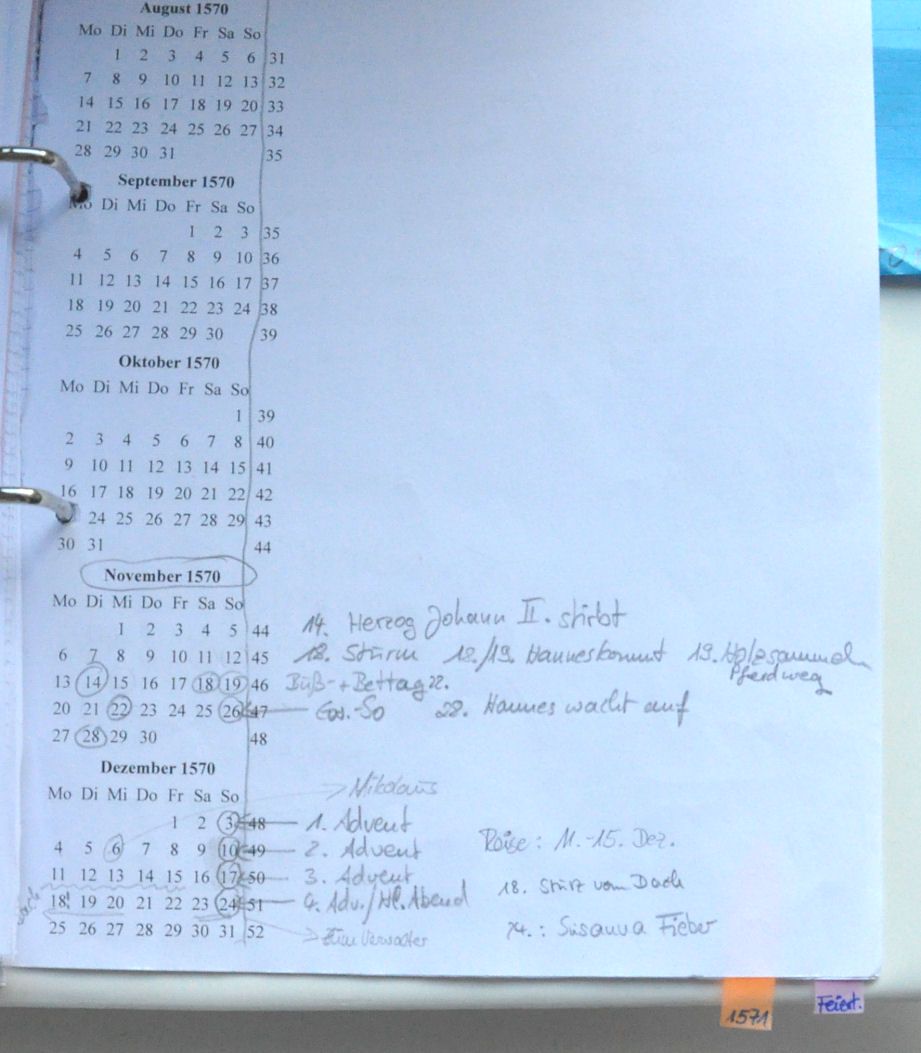 August 1570
Mo Di Mi Do Fr Sa So
1 2 3 4 5 6 31
7 8 9 10 11 12 13 32
14 15 16 17 18 19 20 33
21 22 23 24 25 26 27 34
28 29 30 31 35
September 1570
Mo Di Mi Do Fr Sa So
1 2 3 35
4 5 6 7 8 9 10 36
11 12 13 14 15 16 17 37
18 19 20 21 22 23 24 38
25 26 27 28 29 30 39
Oktober 1570
Mo Di Mi Do Fr Sa So
1 39
2 3 4 5 6 7 8 40
9 10 11 12 13 14 15 41
16 17 18 19 20 21 22 42
24 25 26 27 28 29 43
30 31 44
November 1570
Mo Di Mi Do Fr Sa So
1 2 3 4 5 44 14. Herzog Johann II. stirbt
6 7 8 9 10 11 12 45 18. Sturm 18./19. Hannes kommt 19. Holzsammeln
Pferd weg
13 14 15 16 17 18 19 46 Buß- + Bettag 22.
20 21 22 23 24 25 26 47 Ew.-So 28. Hannes wacht auf
27 28 29 30 48
Dezember 1570
Mo Di Mi Do Fr Sa So
Nikolaus
1 2 3 48 1. Advent
4 5 6 7 8 9 10 49 2. Advent Reise: 11.-15. Dez.
11 12 13 14 15 16 17 50 3. Advent
18 19 20 21 22 23 24 51 4. Adv./Hl. Abend 18. Sturz vom Dach
25 26 27 28 29 30 31 52 zum Verwalter 24.: Susanna Fieber
1571
Feiert.